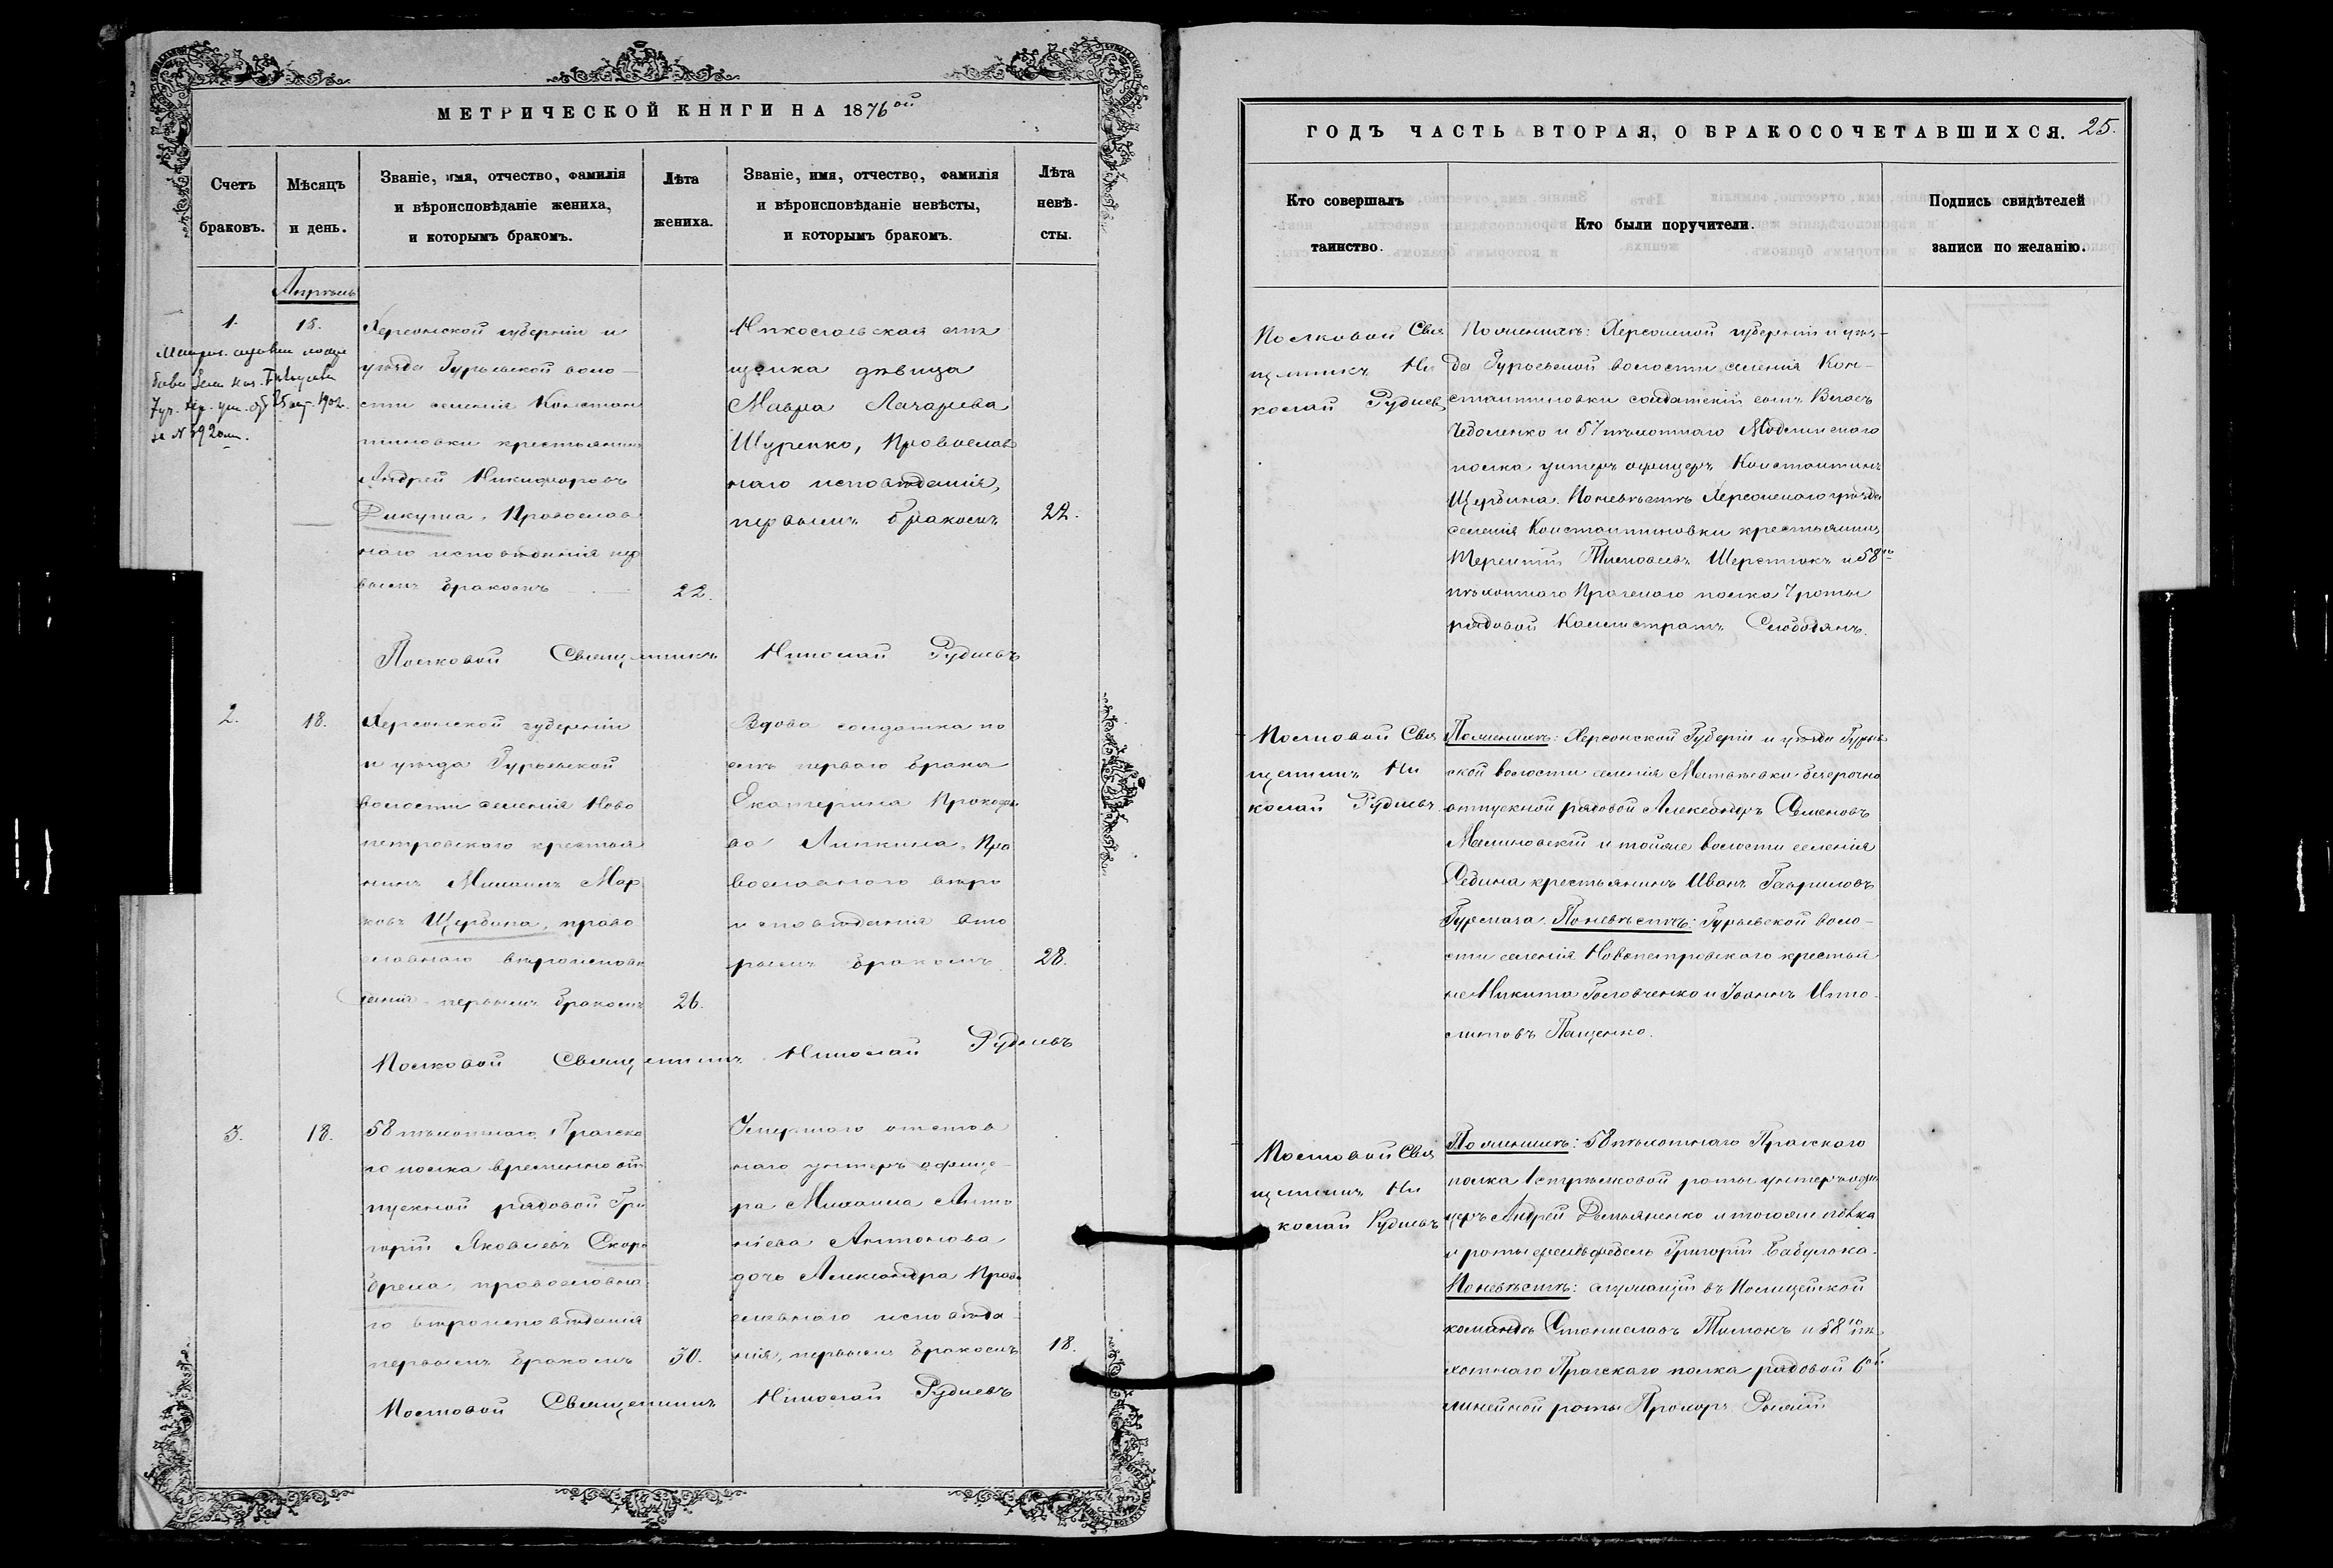 МЕТРИЧЕСКОЙ КНИГИ НА 1876ой
Счетъ браковъ.
Мѣсяцъ и день.
Званіе, имя, отчество, фамилія
и вѣроисповѣданіе жениха,
и которымъ бракомъ.
Лѣта
жениха.
Званіе, имя, отчество, фамилія
и вѣроисповѣданіе невѣсты,
и которымъ бракомъ.
Лѣта
невѣ-
сты.
Апрѣль
1.
18.
Херсонской губерніи и
уѣзда Гурьевской воло-
сти селенія Констан
тиновки крестьянинъ
Андрей Никифоровъ
Дикуша, Православ
наго исповѣданія пер
вымъ бракомъ
22.
дѣвица
Мавра Лазарева
Щуренко, Православ
наго исповѣданія,
первымъ бракомъ
22.
Полковой Священникъ Николай Рудневъ
2.
18.
Херсонской губерніи
и уѣзда Гурьевской
волости селенія Ново
петровскаго крестья
нинъ Михаилъ Мар
ковъ Щербина, право
славнаго вѣроисповѣ
данія первымъ бракомъ
26.
Вдова солдатка по
слѣ перваго брака
Екатерина Прокофье
ва Липкина, Пра
вославнаго вѣро
исповѣданія вто
рымъ бракомъ
28.
Полковой Священникъ Николай Рудневъ
3.
18.
58 пѣхотнаго Пражска
го полка временно от
пускной рядовой Гри
горій Яковлевъ Скоро
православна
го вѣроисповѣданія
первымъ бракомъ
30.
Умершаго отстав
наго унтеръ офице-
ра Михаила
Антонова
дочь Александра Право
славнаго исповѣда-
нія, первымъ бракомъ
18.
Полковой Священникъ Николай Рудневъ
ГОДЪ ЧАСТЬ ВТОРАЯ, О БРАКОСОЧЕТАВШИХСЯ. 25.
Кто совершалъ
таинство.
Кто были поручители.
Подпись свидѣтелей
записи по желанію.
Полковой Свя
щенникъ Ни
колай Рудневъ
По женихѣ: Херсонской губерніи и уѣз-
да Гурьевской волости селенія Кон-
стантиновки солдатскій сынъ Власъ
и 57 пѣхотнаго Модлинскаго
полка унтеръ офицеръ Константинъ
Щербина. По невѣстѣ Херсонскаго уѣзда
селенія Константиновки крестьянинъ
Терентій Шерстюкъ и 58го
пѣхотнаго Пражскаго полка 7 роты
рядовой Каллистратъ Слободянъ.
Полковой Свя
щенникъ Ни
колай Рудневъ
По женихѣ: Херсонской Губерніи и уѣзда Гурьев
ской волости селенія Матвѣевки безсрочно
отпускной рядовой Александръ Семеновъ
Малиновскій и тойже волости селенія
Себина крестьянинъ Иванъ Гавриловъ
По невѣстѣ: Гурьевской воло-
сти селенія Новопетровскаго крестья
не Никита Головченко и Іоаннъ Иппо-
литовъ Пащенко.
Полковой Свя
щенникъ Ни
колай Рудневъ
По женихѣ: 58 пѣхотнаго Пражскаго
полка 1 стрѣлковой роты унтеръ офи
церъ Андрей Демьяненко и тогоже полка
и роты фельдфебель Григорій Бабулька.
По невѣстѣ: служащій въ Полицейской
командѣ Станиславъ Тимокъ и 58го пѣ
хотнаго Пражскаго полка рядовой 6ой
линейной роты Прохоръ